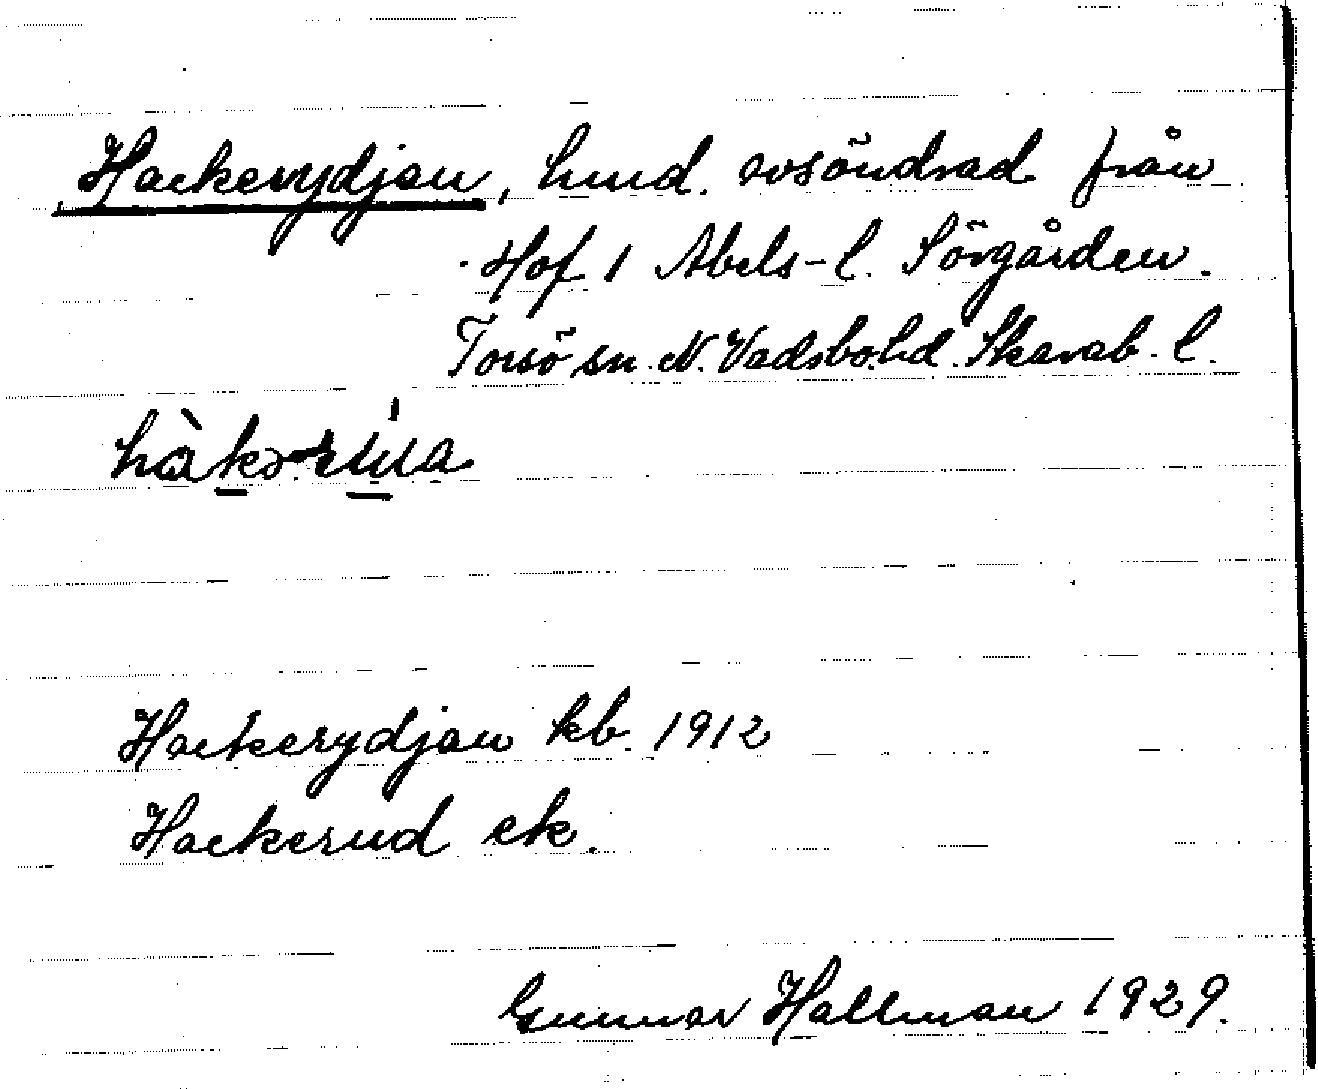 Hackerydjan, hmd. avsöndrad från
Hof 1 Abels-l. Sörgården.
Torsö sn. N. Vadsbo hd. Skarab. l.
Hackerydjan kb. 1912
Hackerud ek.
Gunnar Hallman 1929.